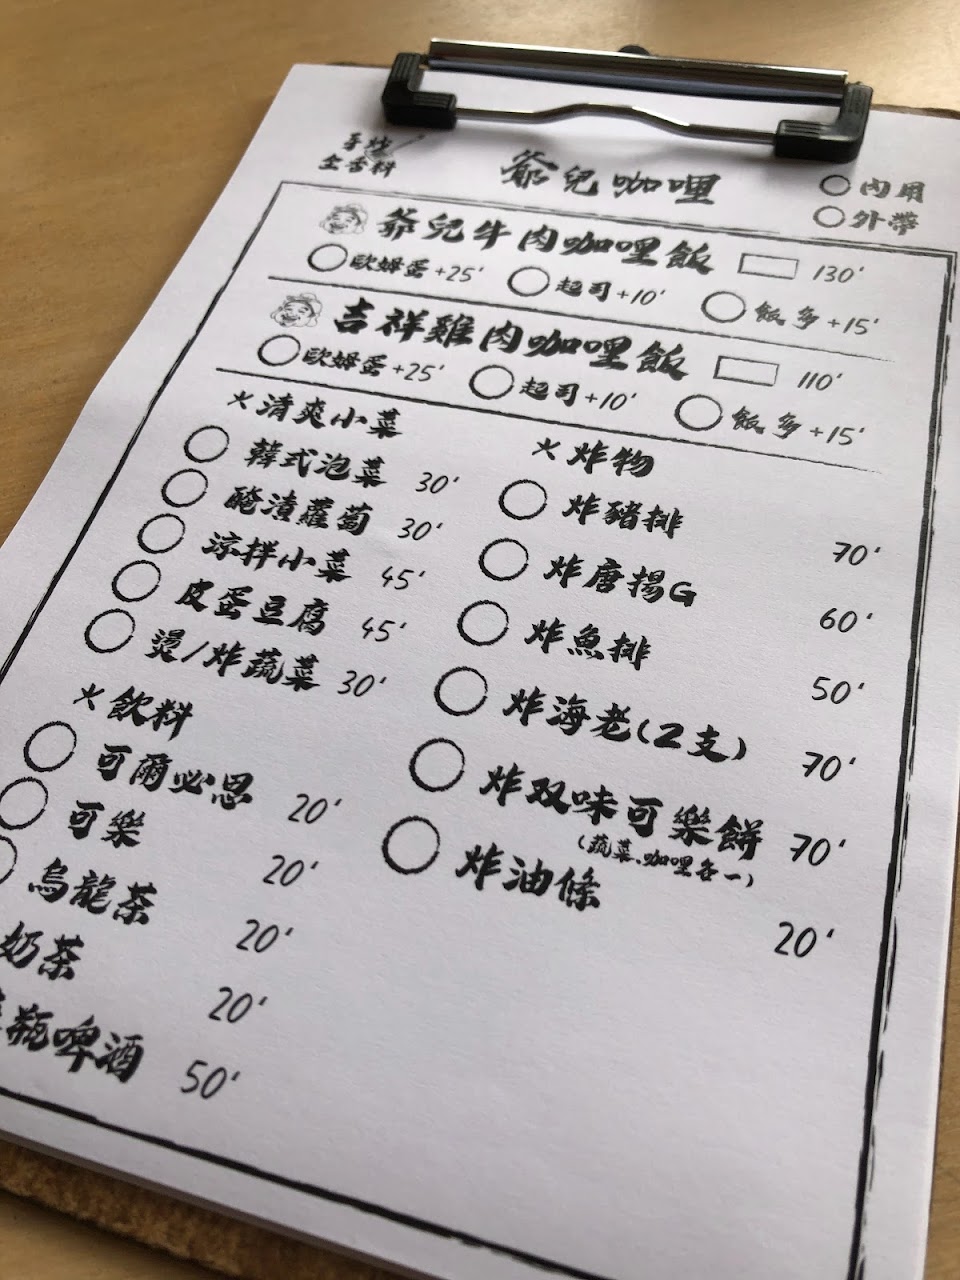 全香料
爺兒咖哩
內用
外帶
爺兒牛肉咖哩飯 130'
歐姆蛋+25' 起司+10' 飯多+15'
吉祥雞肉咖哩飯 110'
歐姆蛋+25' 起司+10' 飯多+15'
×清爽小菜
韓式泡菜 30'
醃漬蘿蔔 30'
涼拌小菜 45'
皮蛋豆腐 45'
燙/炸蔬菜 30'
×飲料
可爾必思 20'
可樂 20'
烏龍茶 20'
奶茶 20'
瓶啤酒 50'
×炸物
炸豬排 70'
炸唐揚G 60'
炸魚排 50'
炸海老(2支) 70'
炸双味可樂餅 70'
(蔬菜、咖哩各一)
炸油條 20'